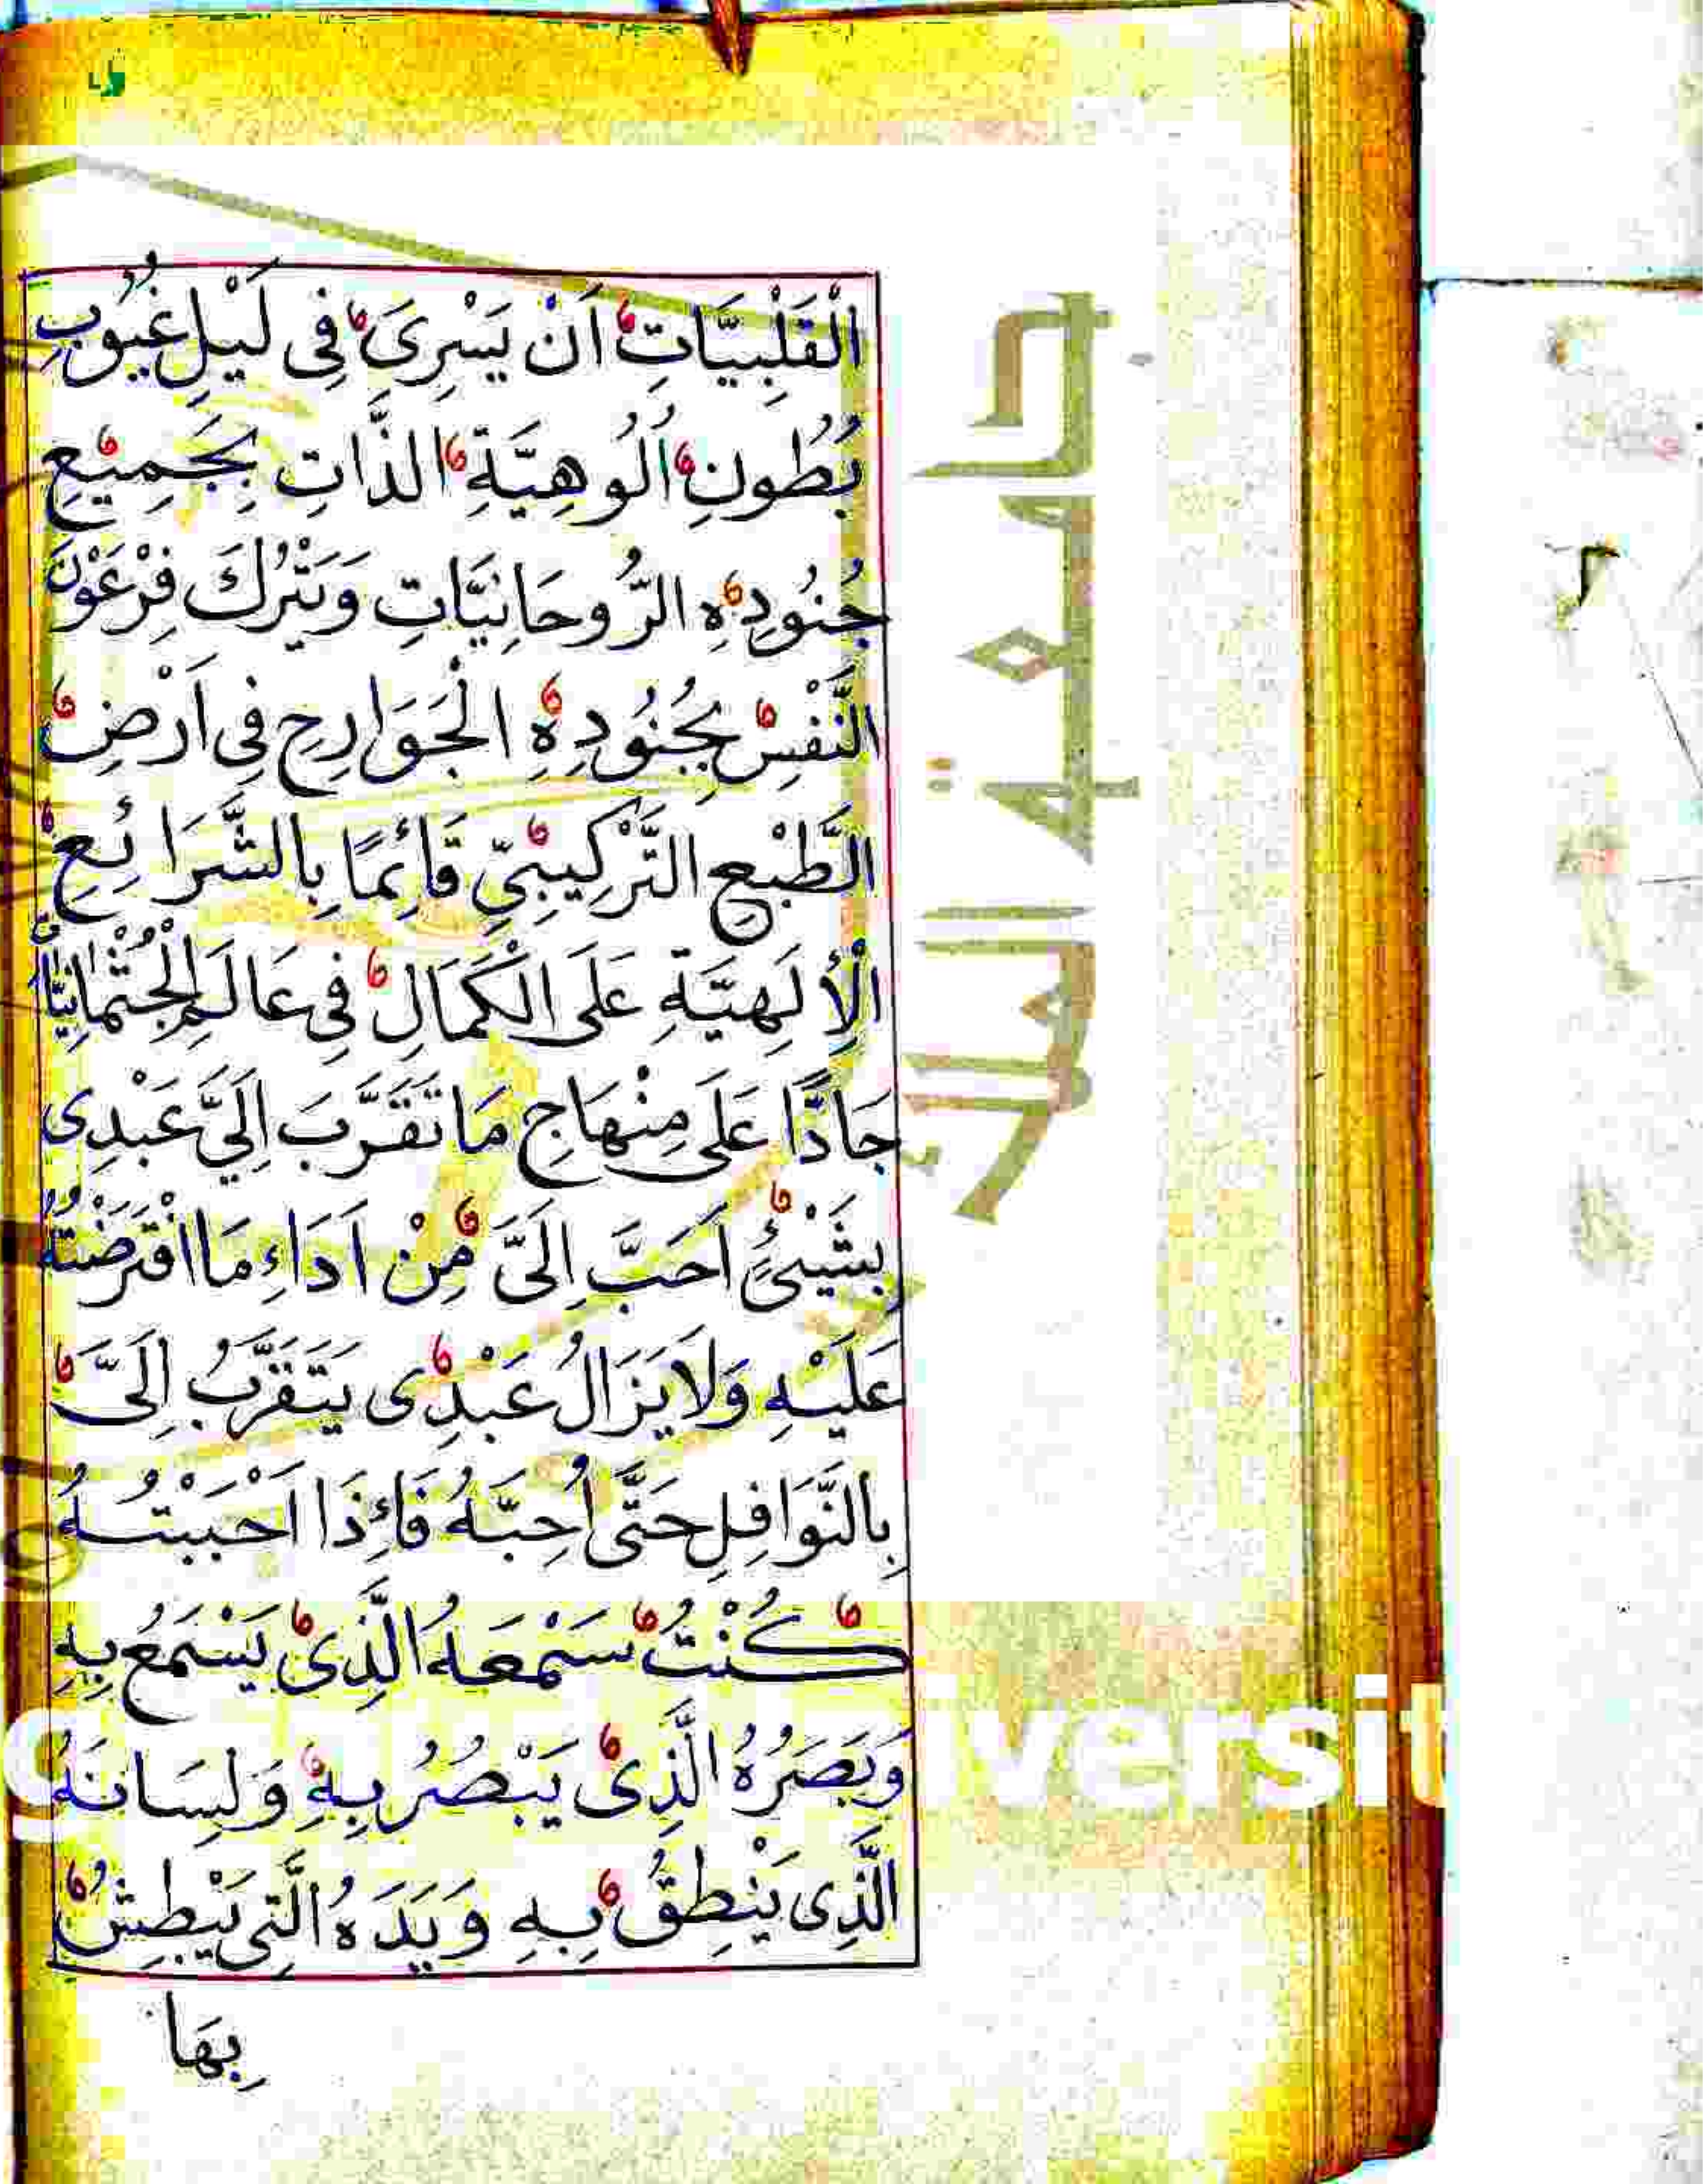 الْقَلْبِيَّاتِ اَنْ يَسْرِىَ فِى لَيْلِ غُيُوبِ
بُطُونِ اُلُوهِيَّةِ الذَّاتِ بِجَمِيْعِ
جُنُودِهِ الرُّوحَانِيَّاتِ وَيَتْرُكَ فِرْعَوْنَ
النَّفْسِ بِجُنُودِهِ الْجَوَارِحِ فِى اَرْضِ
الطَّبْعِ التَّرْكِيبِيِّ قَائِمًا بِالشَّرَائِعِ
الْاِلَهِيَّةِ عَلَى الْكَمَالِ فِى عَالَمِ الْجُثْمَانِيَّاتِ
جَادًّا عَلَى مِنْهَاجِ مَا تَقَرَّبَ اِلَيَّ عَبْدِى
بِشَيْئٍ اَحَبَّ اِلَىَّ مِنْ اَدَاءِ مَا افْتَرَضْتُهُ
عَلَيْهِ وَلَا يَزَالُ عَبْدِى يَتَقَرَّبُ اِلَىَّ
بِالنَّوَافِلِ حَتَّى اُحِبَّهُ فَاِذَا اَحْبَبْتُهُ
كُنْتُ سَمْعَهُ الَّذِى يَسْمَعُ بِهِ
وَبَصَرُهُ الَّذِى يَبْصُرُ بِهِ وَلِسَانَهُ
الَّذِى يَنْطِقُ بِهِ وَيَدَهُ الَّتِى يَبْطِشُ
بِهَا
جامعة الملك
g Saud Universit